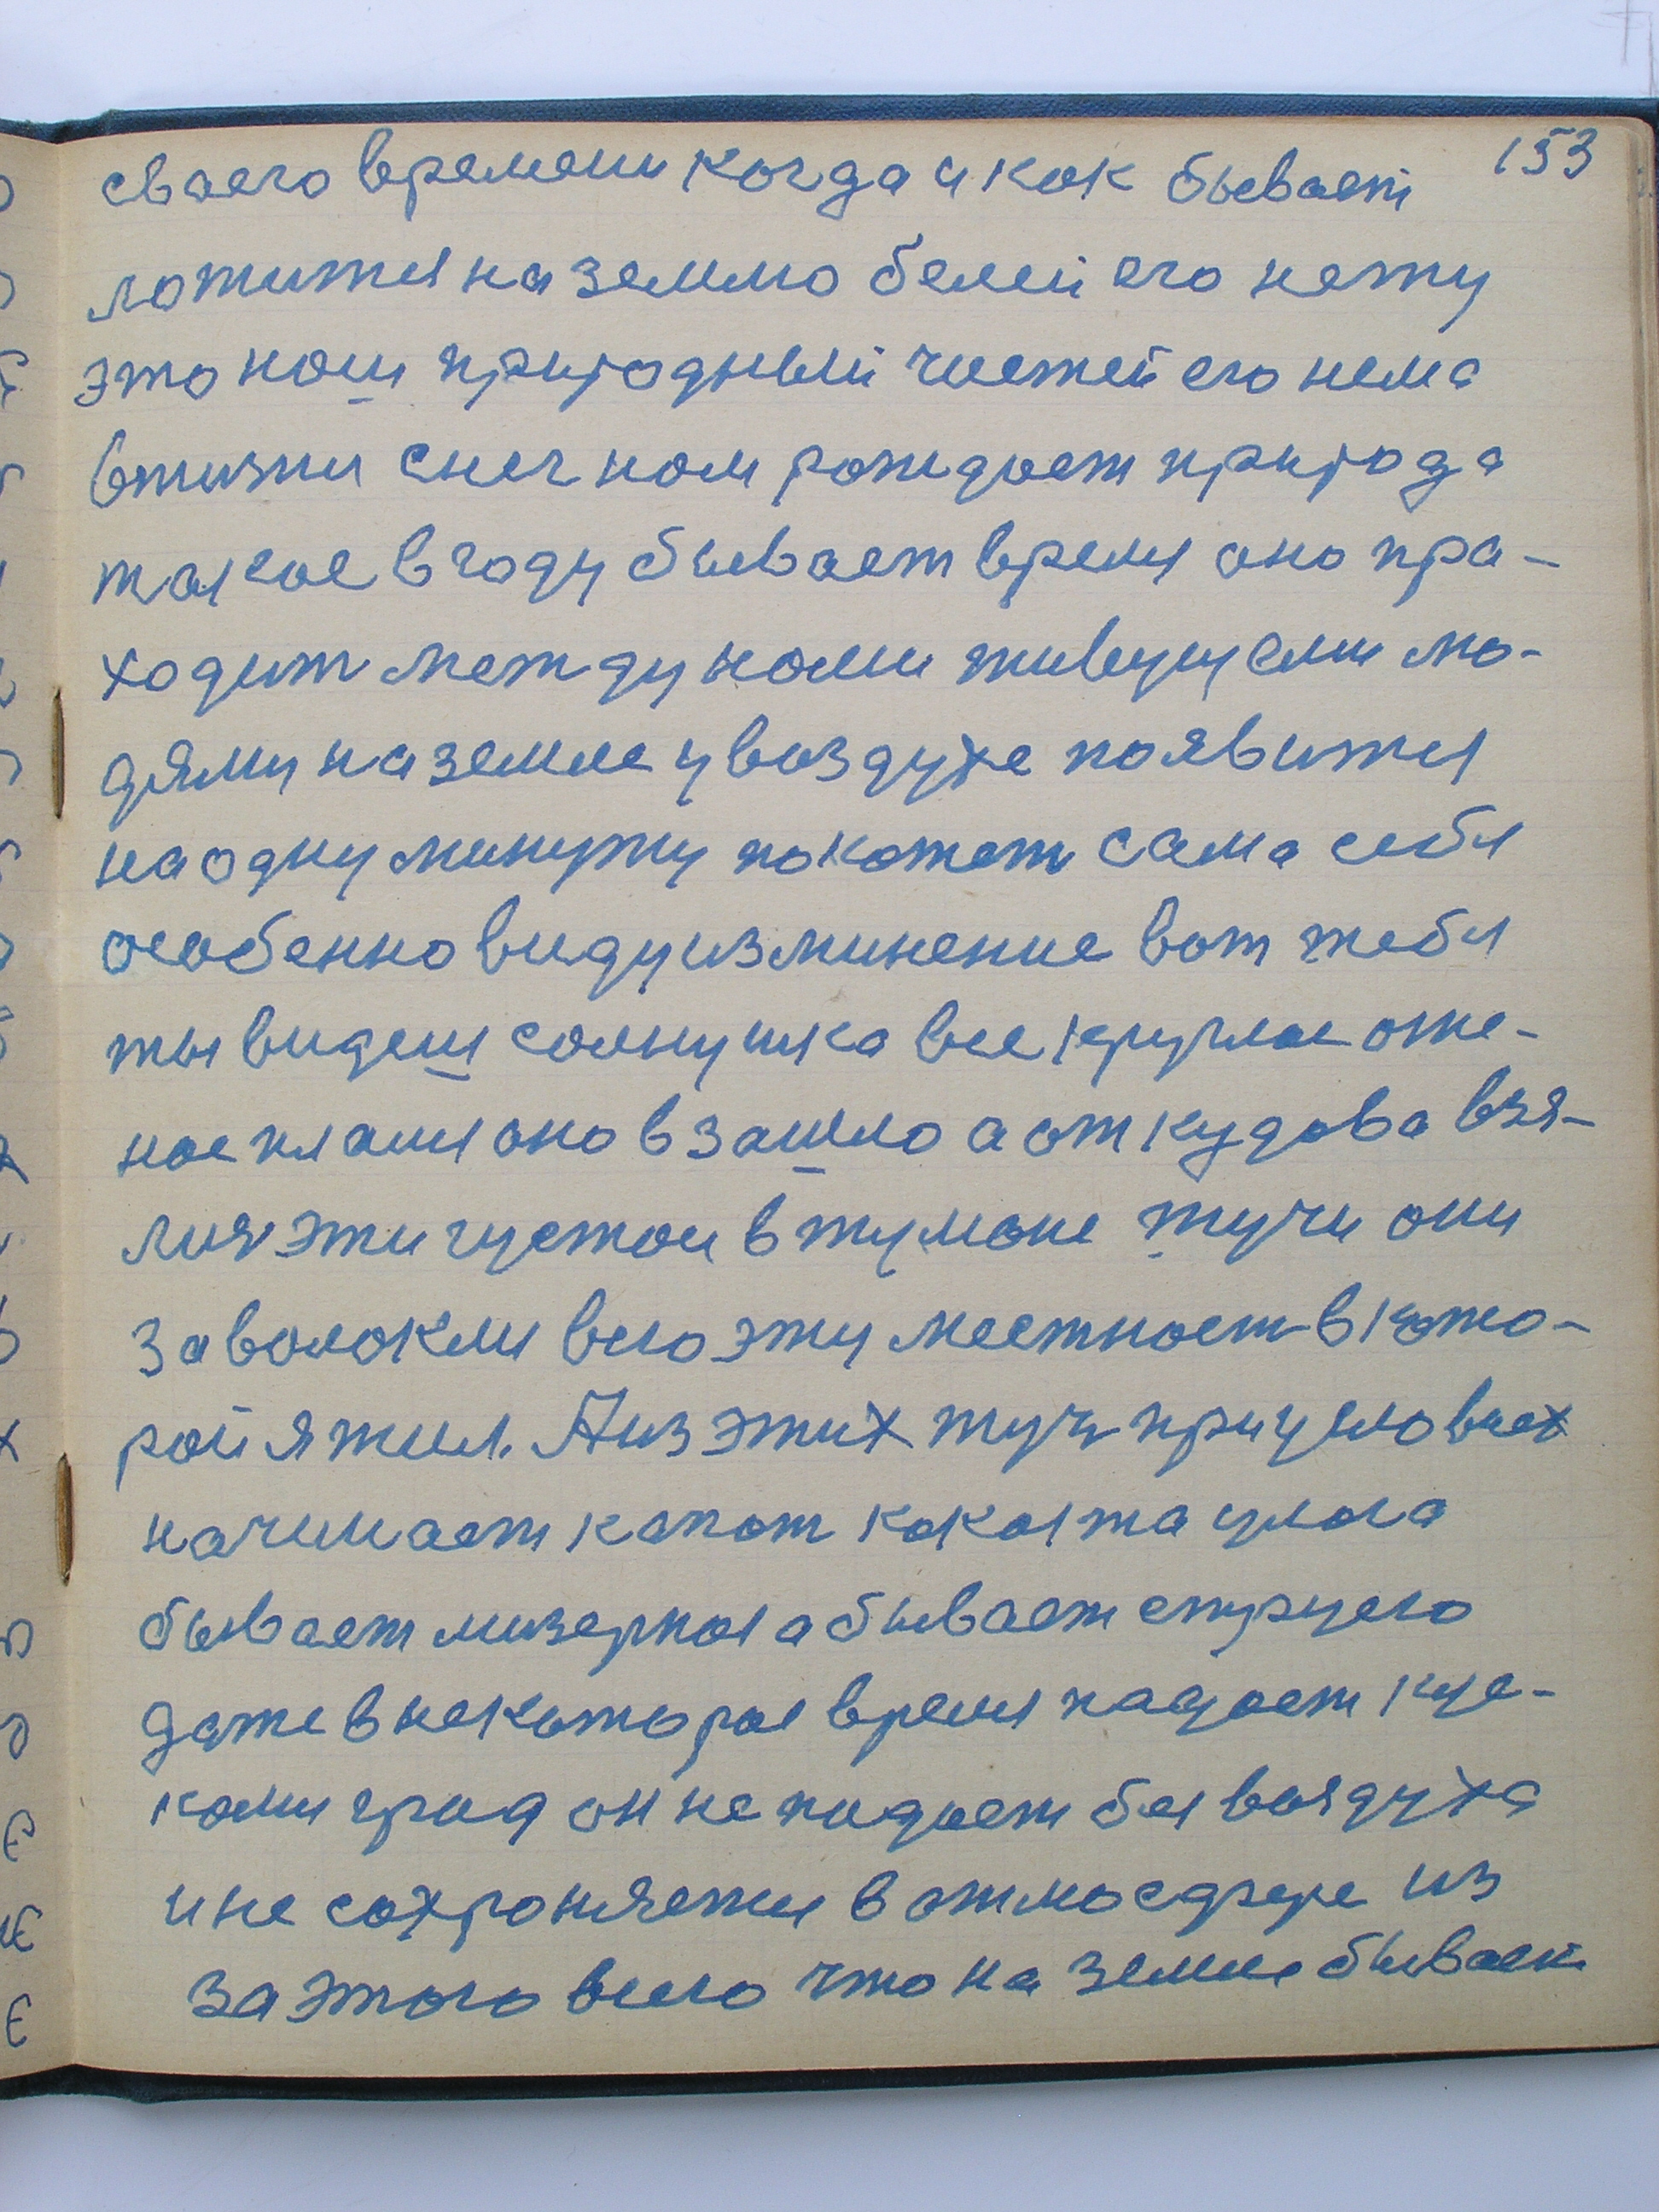 153
сваего времени когда и как бывает
ложится на землю белей его нету
это наш природный чистей его нема
в жизни снег нам рождает природа
такое в году бывает время оно пра-
ходит между нами живущими лю-
дями на земле у воздухе появится
на одну минуту покажет сама себя
особенно виду изминение вот тебя
ты видеш солнушка все круглое огне-
ное пламя оно взашло а от кудова взя-
лися эти густои в тумане тучи они
заволокли всю эту местность в кото-
рой я жил. А из этих туч при условиях
начинает капат какая та улага
бывает мизерная а бывает струею
даже в некоторае время падает кус-
ками град он не падает без воздуха
и не сохроняется в атмосфере из
за этого всего что на земле бывает